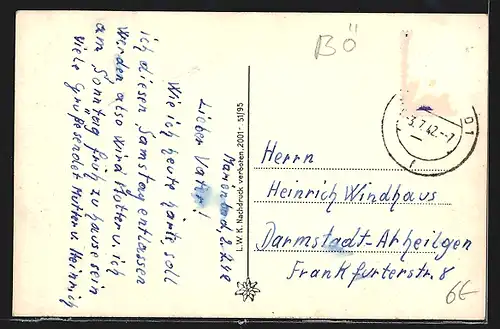 BÖ
Marienbad, 2.2.42
Lieber Vater!
Wie ich heute hörte, soll
ich diesen Samstag entlassen
werden also wird Mutter u. ich
am Sonntag früh zu hause sein
viele Grüße sendet Mutter u. Heinrich
L. W. K. Nachdruck verboten, 2001- 51/95
-3.2.42.-7
01
Herrn
Heinrich Windhaus
Darmstadt-Arheilgen
Frankfurterstr. 8
6E